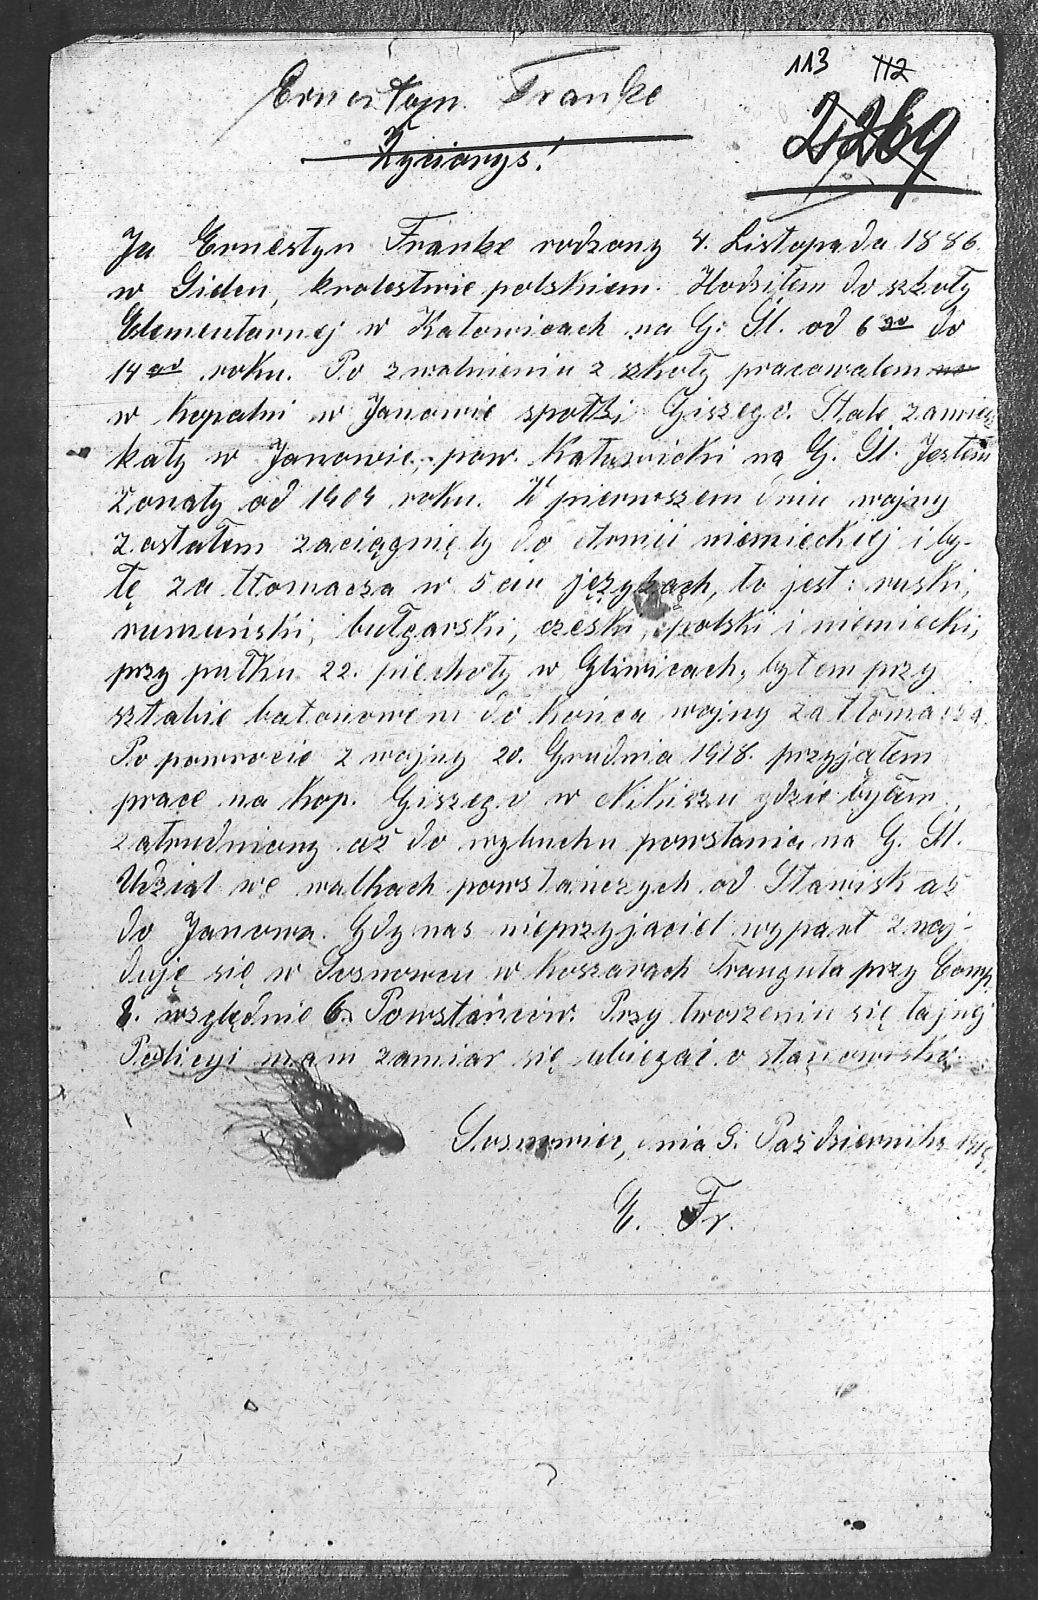 113 112
Ernestyn Franke
2269
Życiorys!
Ja Ernestyn Franke rodzony 4. Listopada 1886
w Gidlen, krolestwie polskiem. Hodziłem do szkoły
Elementarnej w Katowicach na G. Śl. od 6go do
14go roku. Po zwalnieniu z szkoły pracowałem
w kopalni w Janowie społki Giszego. Stale zamiesz
kały w Janowie, pow. Katowicki na G. Śl. Jestem
żonaty od 1909 roku. W pierwszem dniu wojny
zostałem zaciągnięty do Armii niemieckiej i by-
łę za tłomacza w 5ciu językach, to jest: ruski,
rumuński, bułgarski, czeski, polski i niemiecki,
przy pułku 22. piechoty w Gliwicach, byłem przy
sztabie batonowem do końca wojny za tłomacza.
Po powrocie z wojny 20. Grudnia 1918. przyjąłem
prace na kop. Giszego w Nikiszu gdzie byłam
zatrudniony aż do wybuchu powstania na G. Śl.
Udział we walkach powstańczych od Stawisk aż
do Janowa. Gdy nas nieprzyjaciel wyparł znaj-
duję się w Sosnowcu w koszarach Trauguta przy Comp.
8. względnie 6. Powstańców. Przy tworzeniu się tajnej
Policyi mam zamiar się ubiegać o stanowisko.
Sosnowiec, dnia 9. Październiku
E. Fr.